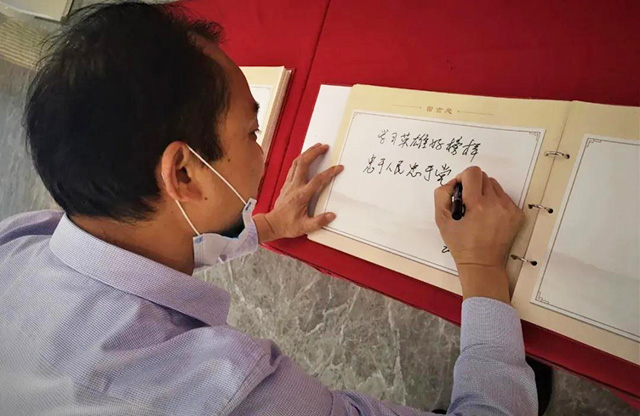 学习英雄好榜样
忠于人民 忠于党